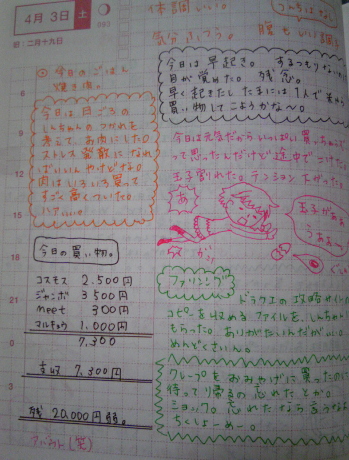 4月 3日 土
093
旧:二月十九日
体調いい。
気分
腰もいい調子
今日のごはん
焼き肉。
今日は日ごろの
しんちゃんのつかれを
考えて、お肉にした。
ストレス発散になれ
ばいいんやけどな。
肉はいろいろ買って
すごく高くついた。
今日は早起き。するつもりない
目が覚めた。残念。
早く起きたし たまには1人で
買い物してこようかな〜。
今日は元気だからいっぱい買っちゃうぞ
って思ったんだけど途中でコけた。
玉子割れた。テンション下がった。
あ
玉子があぁ
うああ〜
今日の買い物。
コスモス 2.500円
ジャンボ 3500円
meet 300円
マルキョウ 1,000円
7,300
支出 7,300円
残 20,000円弱。
(笑)
ファイリング
ドラクエの攻略サイトの
コピーを収めるファイルを、しんちゃん
もらった。ありがたいんだがい。
めんどくさいん。
クレープをおみやげに買ったのに
持って帰るの忘れたとか。
ショック。忘れたなら言うなよ
ちくしょーめー。